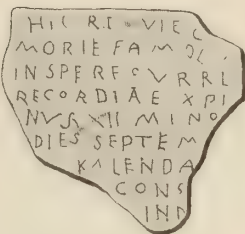 HIC REQVIEC
MORIE FAMOL
IN SPE RESVRRE
RECORDIAE XPI
NVS XII MINO
DIES SEPTEM
KALENDA
CONS
INN